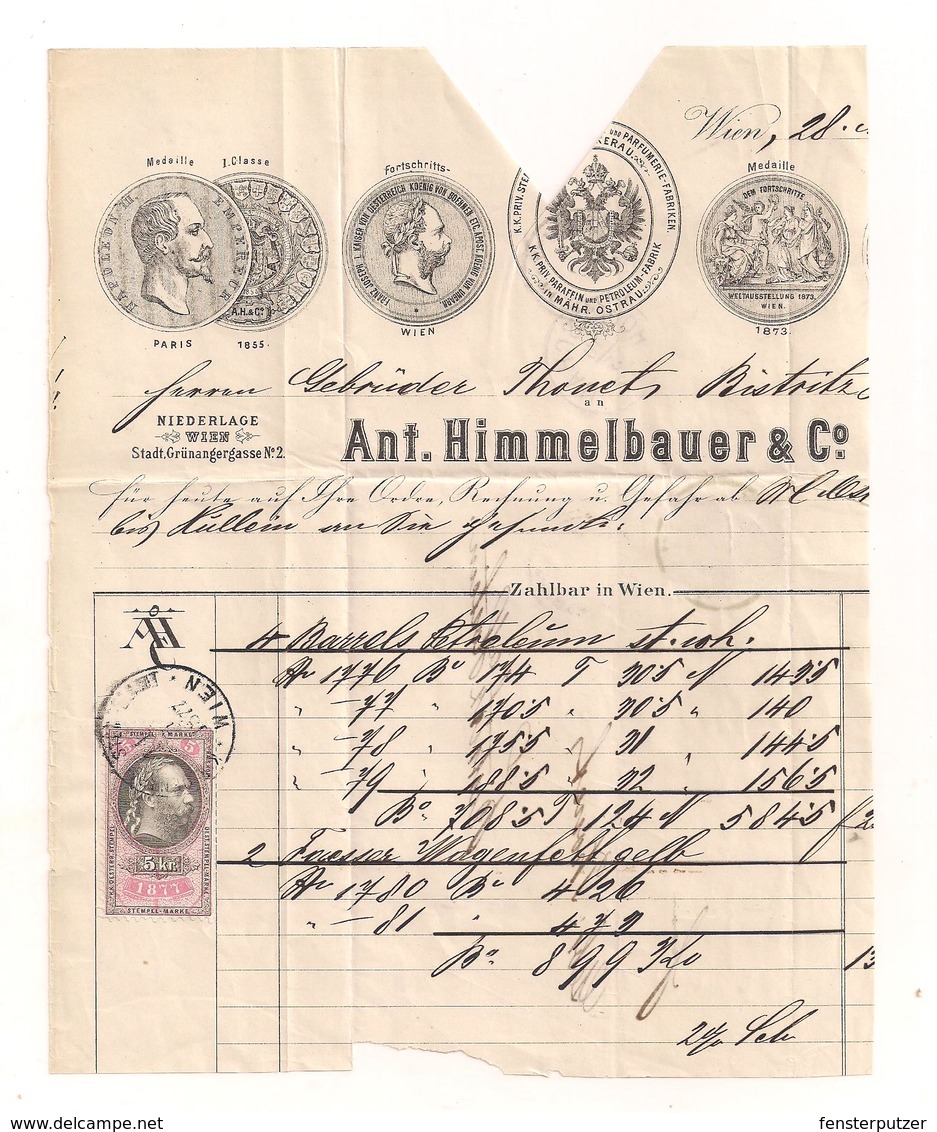 Wien, 28.
Medaille I. Classe
Fortschritts-
Medaille
NAPOLEON III. EMPEREUR
A.H.&Cº
FRANZ JOSEPH I. KAISER VON OESTERREICH KOENIG VON BOEHMEN ETC. APOST. KOENIG VON UNGARN
K.K. PRIV. STEA
UND PARFUMERIE-FABRIKEN.
KERAU.
K.K. PRIV. PARAFFIN UND PETROLEUM-FABRIK
IN MÄHR. OSTRAU.
DEM FORTSCHRITTE
WELTAUSSTELLUNG 1873.
WIEN.
PARIS 1855.
WIEN
1873.
Herren Gebrüder Thonet, Bistritz
an
NIEDERLAGE
WIEN
Stadt, Grünangergasse Nº 2.
Ant. Himmelbauer & Cº
für heute auf Ihre Ordre, Rechnung u. Gefahr ab
bis Hullein an Sie gesandte:
Zahlbar in Wien.
4 Barrels Petroleum
1776 Bº 174 T 30·5 N 143·5
" -77 " 170·5 " 30·5 " 140
" -78 " 175·5 " 31 " 144·5
" -79 " 188·5 " 32 " 156·5
Bº 708·5 T 124 N 584·5 f 2
2 Faesser Wagenfett gelb
1780 Bº 426
" -81 " 473
Bº 899 Ko 13
2%
WIEN
77
5 STEMPEL-MARKE 5
5 kr.
1877
STEMPEL-MARKE
www.delcampe.net
fensterputzer